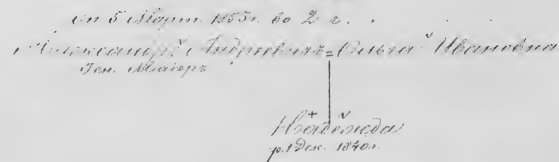 5 Март. 1855г. 2
Александръ Андреевичъ = Ольга Ивановна
Ген. Маіоръ
Надежда
р. 1 Дек. 1840г.